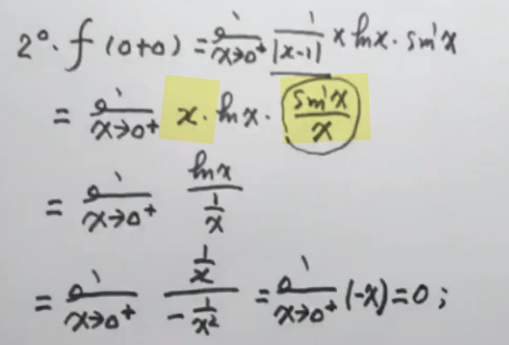 2°. f(0+0) = lim_{x→0⁺} \frac{1}{|x-1|} x lnx · sin x
= lim_{x→0⁺} x · lnx · \frac{sin x}{x}
= lim_{x→0⁺} \frac{lnx}{\frac{1}{x}}
= lim_{x→0⁺} \frac{\frac{1}{x}}{-\frac{1}{x²}} = lim_{x→0⁺} (-x) = 0 ;